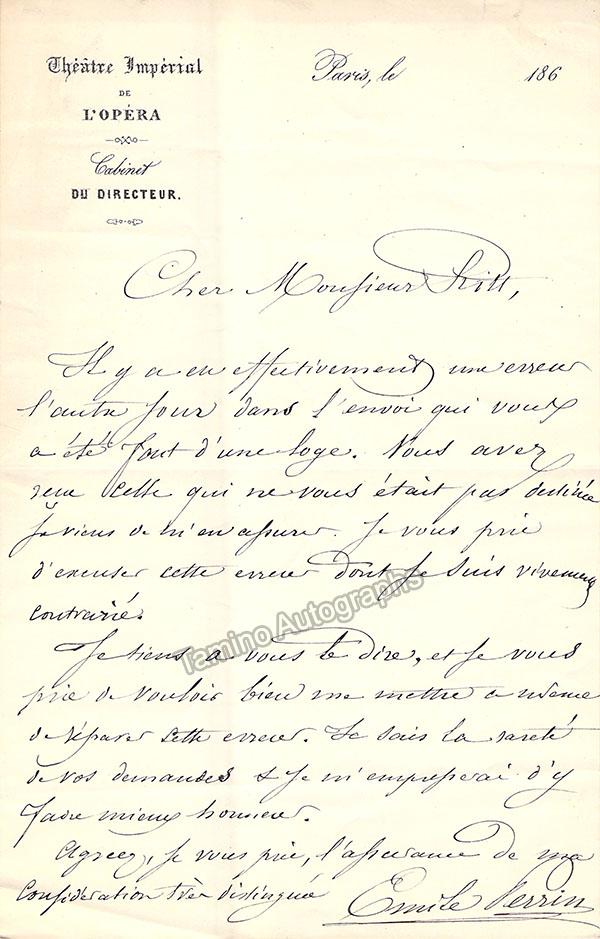 Théâtre Impérial
DE
L'OPÉRA
Cabinet
DU DIRECTEUR.
Paris, le 186
Cher Monsieur Ritt,
Il y a eu effectivement une erreur
l'autre jour dans l'envoi qui vous
a été fait d'une loge. Vous avez
reçu celle qui ne vous était pas destinée
Je viens de m'en assurer. Je vous prie
d'excuser cette erreur dont je suis vivement
contrarié.
Je tiens à vous le dire, et je vous
prie de vouloir bien me mettre a même
de réparer cette erreur. Je sais la rareté
de vos demandes & je m'empresserai d'y
faire mieux honneur.
Agréez, je vous prie, l'assurance de ma
considération très distinguée
Emile Perrin
Tamino Autographs